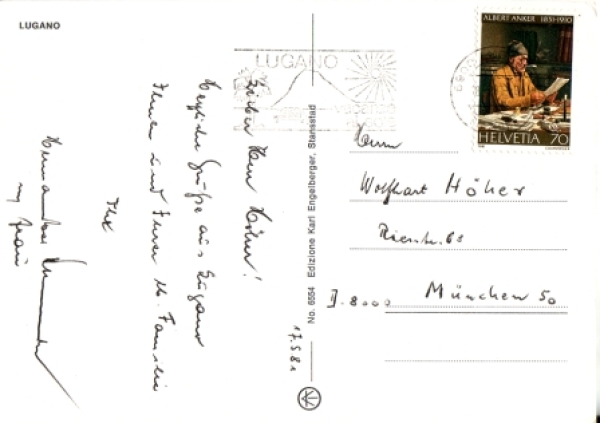 LUGANO
Lieber Herr Höher!
Herzliche Grüße aus Lugano
Ihnen und Ihrer w. Familie
Ihr
u. Frau
17.5.81
No. 6554 Edizione Karl Engelberger, Stansstad
LUGANO
ALBERT ANKER 1831-1910
HELVETIA 70
Herrn
Wolfhart Höher
68
D-8000 München 50